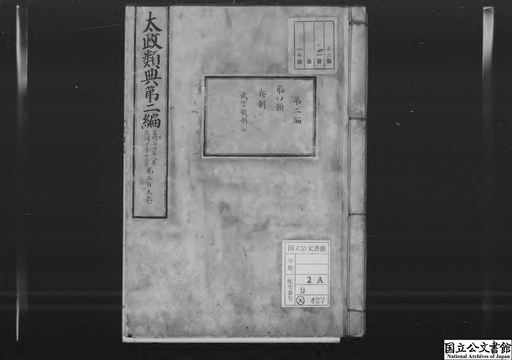 太政類典第二編
第二百九巻
第二編
第四類
兵制
武官職制
国立公文書館
分類
配架番号
2A
9
太 427
国立公文書館
National Archives of Japan